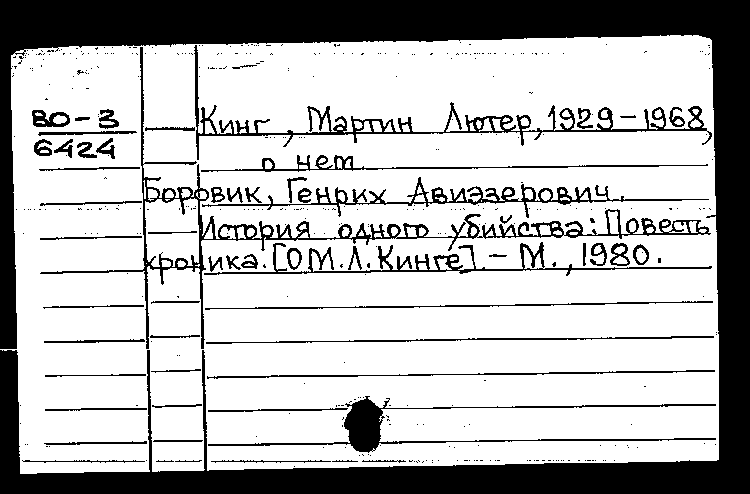 ВО-3
6424
Кинг, Мартин Лютер, 1929-1968,
о нем
Боровик, Генрих Авиэзерович.
История одного убийства: Повесть-
хроника. [О М.Л. Кинге]. - М., 1980.